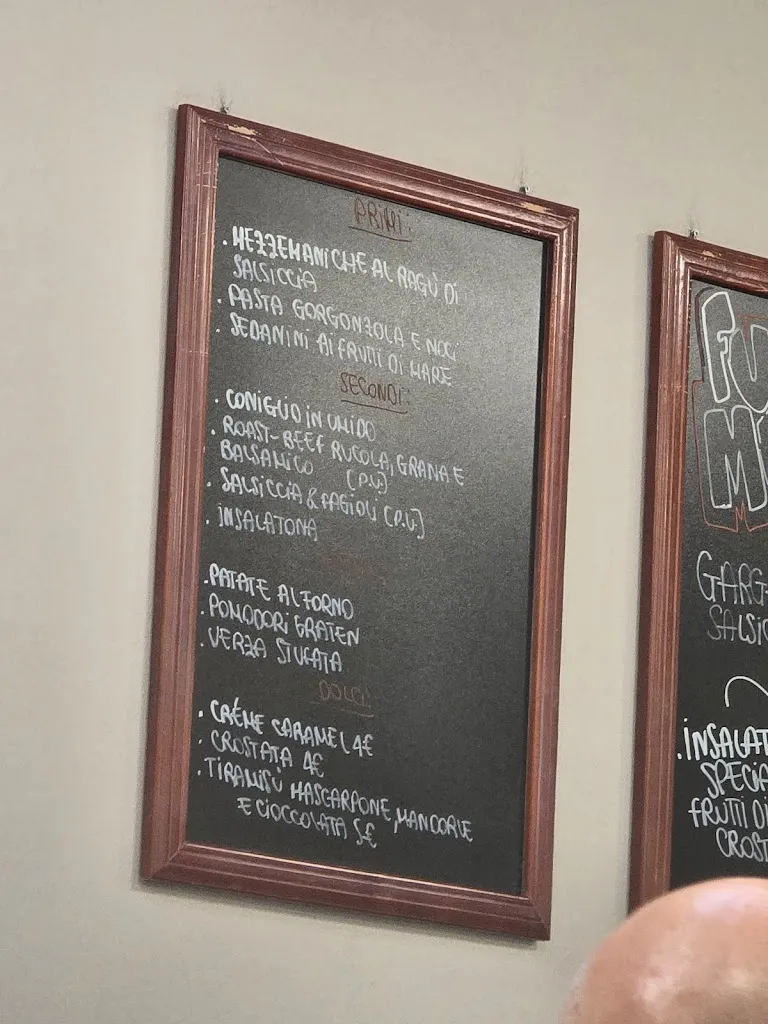 PRIMI:
. MEZZEMANICHE AL RAGÙ DI
SALSICCIA
. PASTA GORGONZOLA E NOCI
. SEDANINI AI FRUTTI DI MARE
SECONDI:
. CONIGLIO IN UMIDO
. ROAST-BEEF RUCOLA, GRANA E
BALSAMICO (P.U)
. SALSICCIA & FAGIOLI (P.U)
. INSALATONA
. PATATE AL FORNO
. POMODORI GRATEN
. VERZA STUFATA
DOLCI:
. CRÉME CARAMEL 4€
. CROSTATA 4€
. TIRAMISÙ MASCARPONE, MANDORLE
E CIOCCOLATA 5€
FU
M
GARG
SALSIC
. INSALAT
SPECIA
FRUTTI DI
CROST